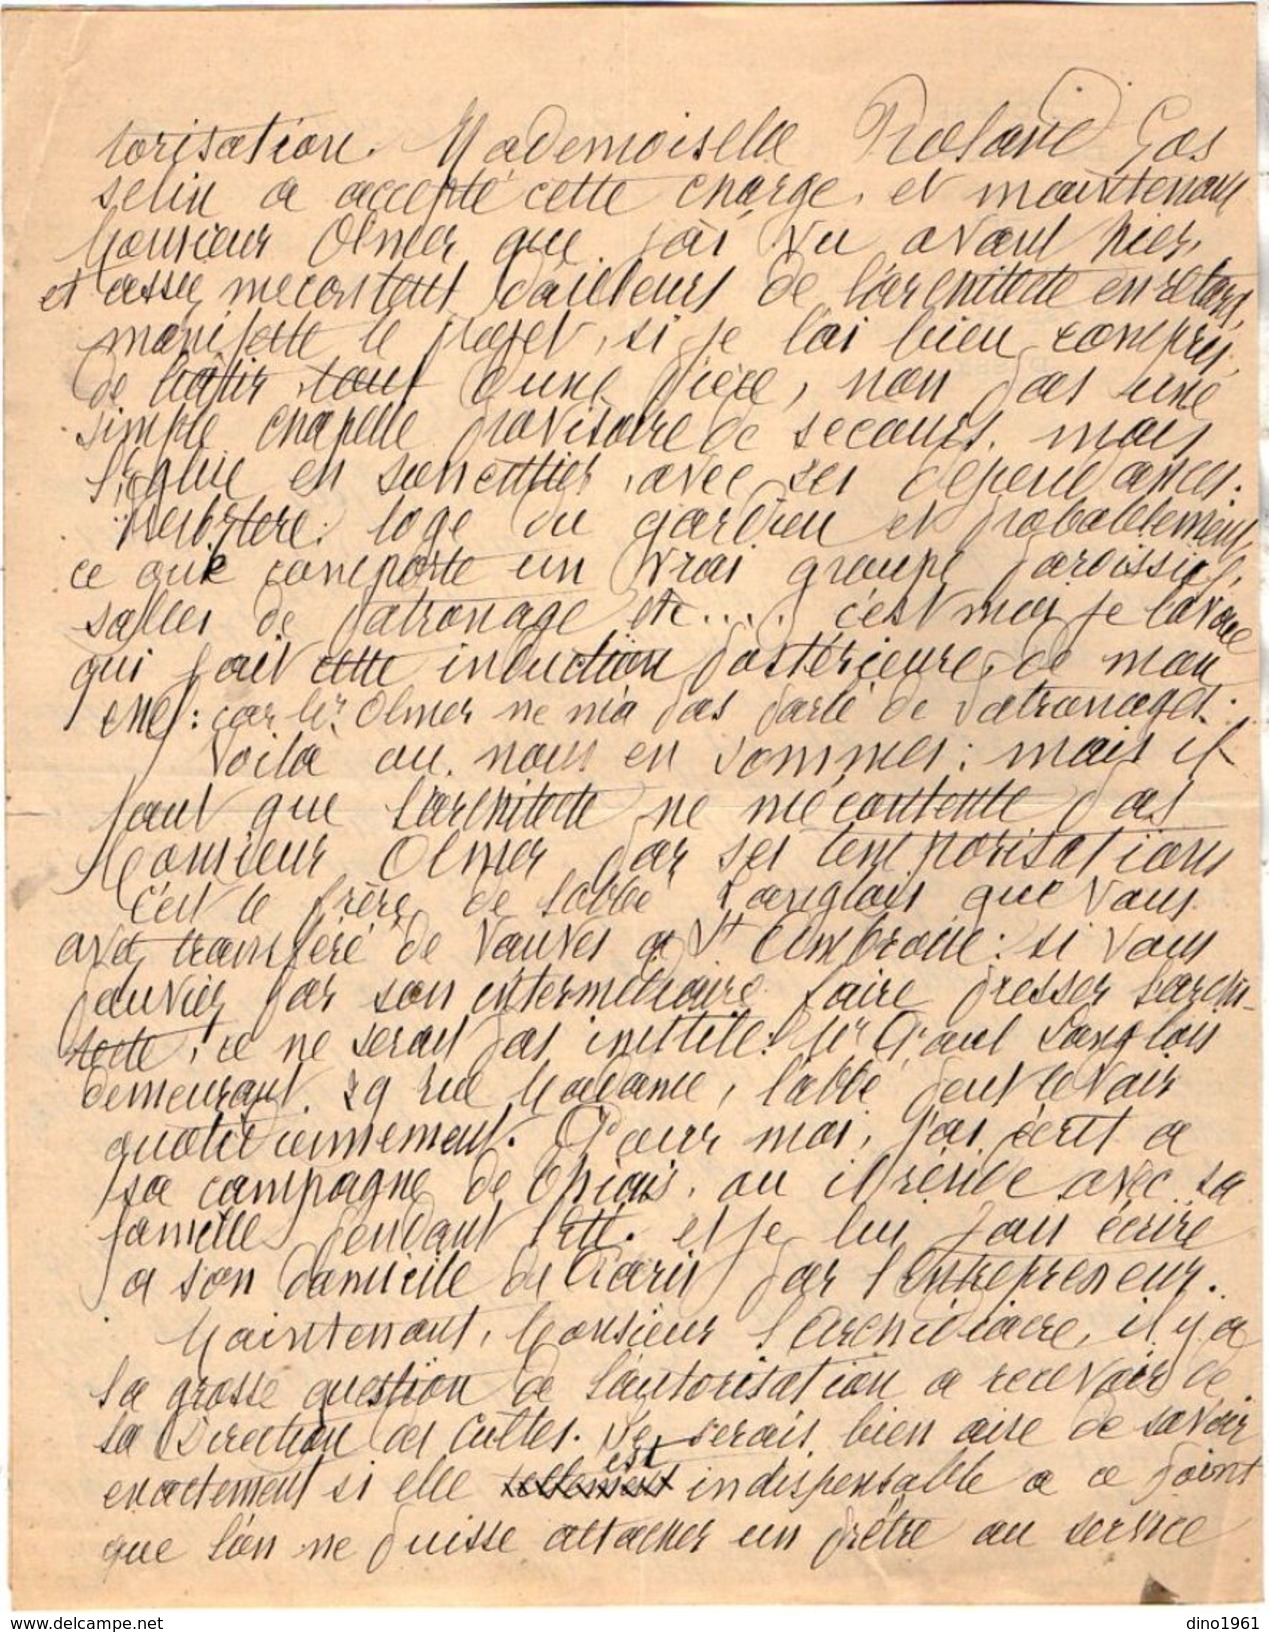 torisation. Mademoiselle Roland Gos
selin a accepté cette charge, et maintenant
Monsieur Olmer que j'ai vu avant hier,
et assez mecontent d'ailleurs de l'architecte en retard,
manifeste le projet, si je l'ai bien compris,
de bâtir tout d'une pièce, non pas une
simple chapelle provisoire de secours, mais
l'église en son entier, avec ses dépendances:
Presbytère, loge du gardien et probablement,
ce que comporte un vrai groupe paroissial,
salles de patronage etc.... c'est moi je l'avoue
qui fait cette induction postérieure, de mon
chef: car Mr Olmer ne m'a pas parlé de patronages.
Voilà où nous en sommes: mais il
faut que l'architecte ne mécontente pas
Monsieur Olmer par ses temporisations
C'est le frère de l'abbé Langlois que vous
avez transféré de Vanves à St Ambroise: si vous
pouviez par son intermédiaire faire presser l'archi-
tecte, ce ne serait pas inutile! Mr Paul Langlois
demeurant 29 rue Madame, l'abbé peut le voir
quotidiennement. Pour moi, j'ai écrit a
sa campagne de Thiais, où il réside avec sa
famille pendant l'été. et je lui fais écrire
a son domicile de Paris par l'Entrepreneur.
Maintenant, Monsieur l'Archidiacre, il y a
la grosse question de l'autorisation a recevoir de
la Direction des Cultes. Je serais bien aise de savoir
est
exactement si elle indispensable a ce point
que l'on ne puisse attacher un prêtre au service
www.delcampe.net
dino1961